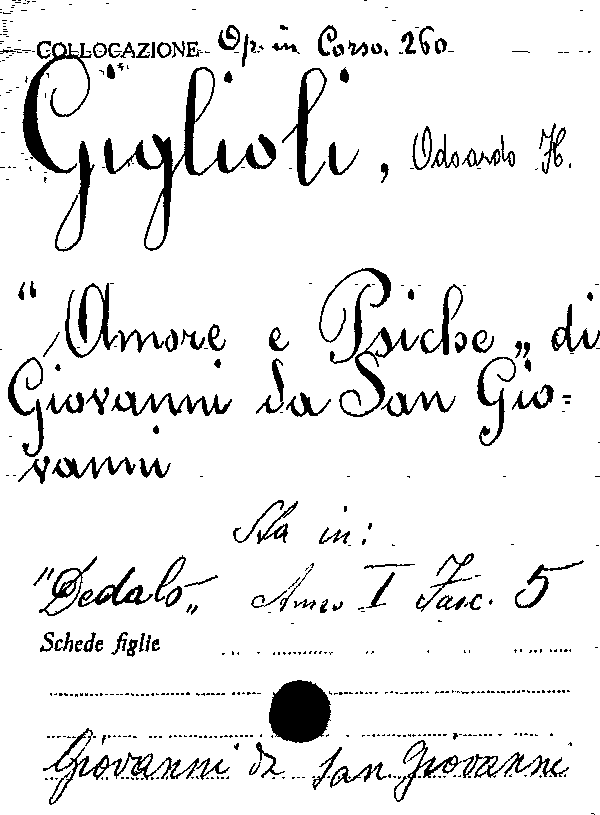 COLLOCAZIONE Op. in Corso. 260
Giglioli, Odoardo H.
"Amore e Psiche„ di
Giovanni da San Gio=
vanni
Sta in:
"Dedalo„ Anno I Fasc. 5
Schede figlie
Giovanni da San Giovanni